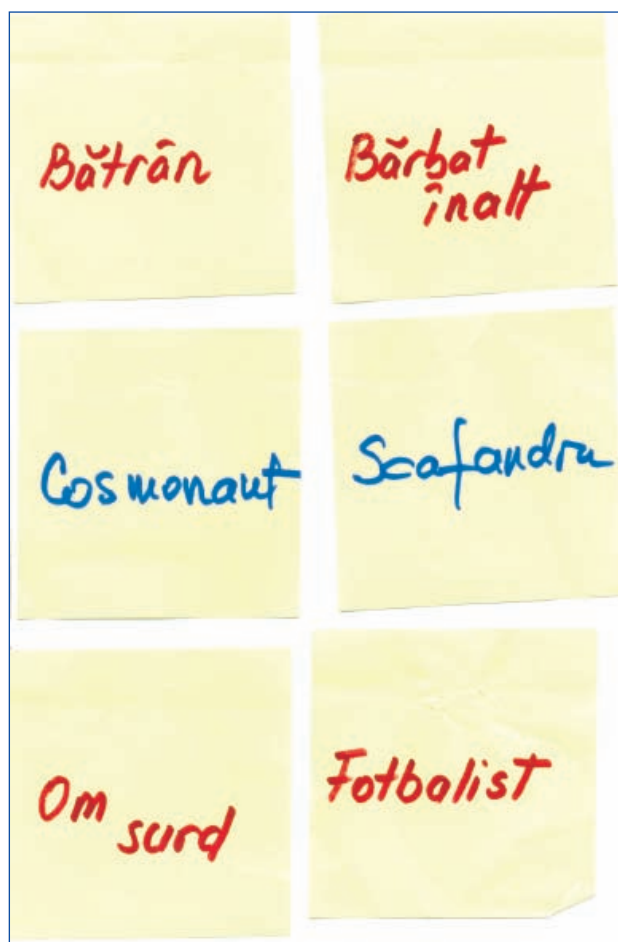 Bătrân
Bărbat
înalt
Cosmonaut
Scafandru
Om
surd
Fotbalist